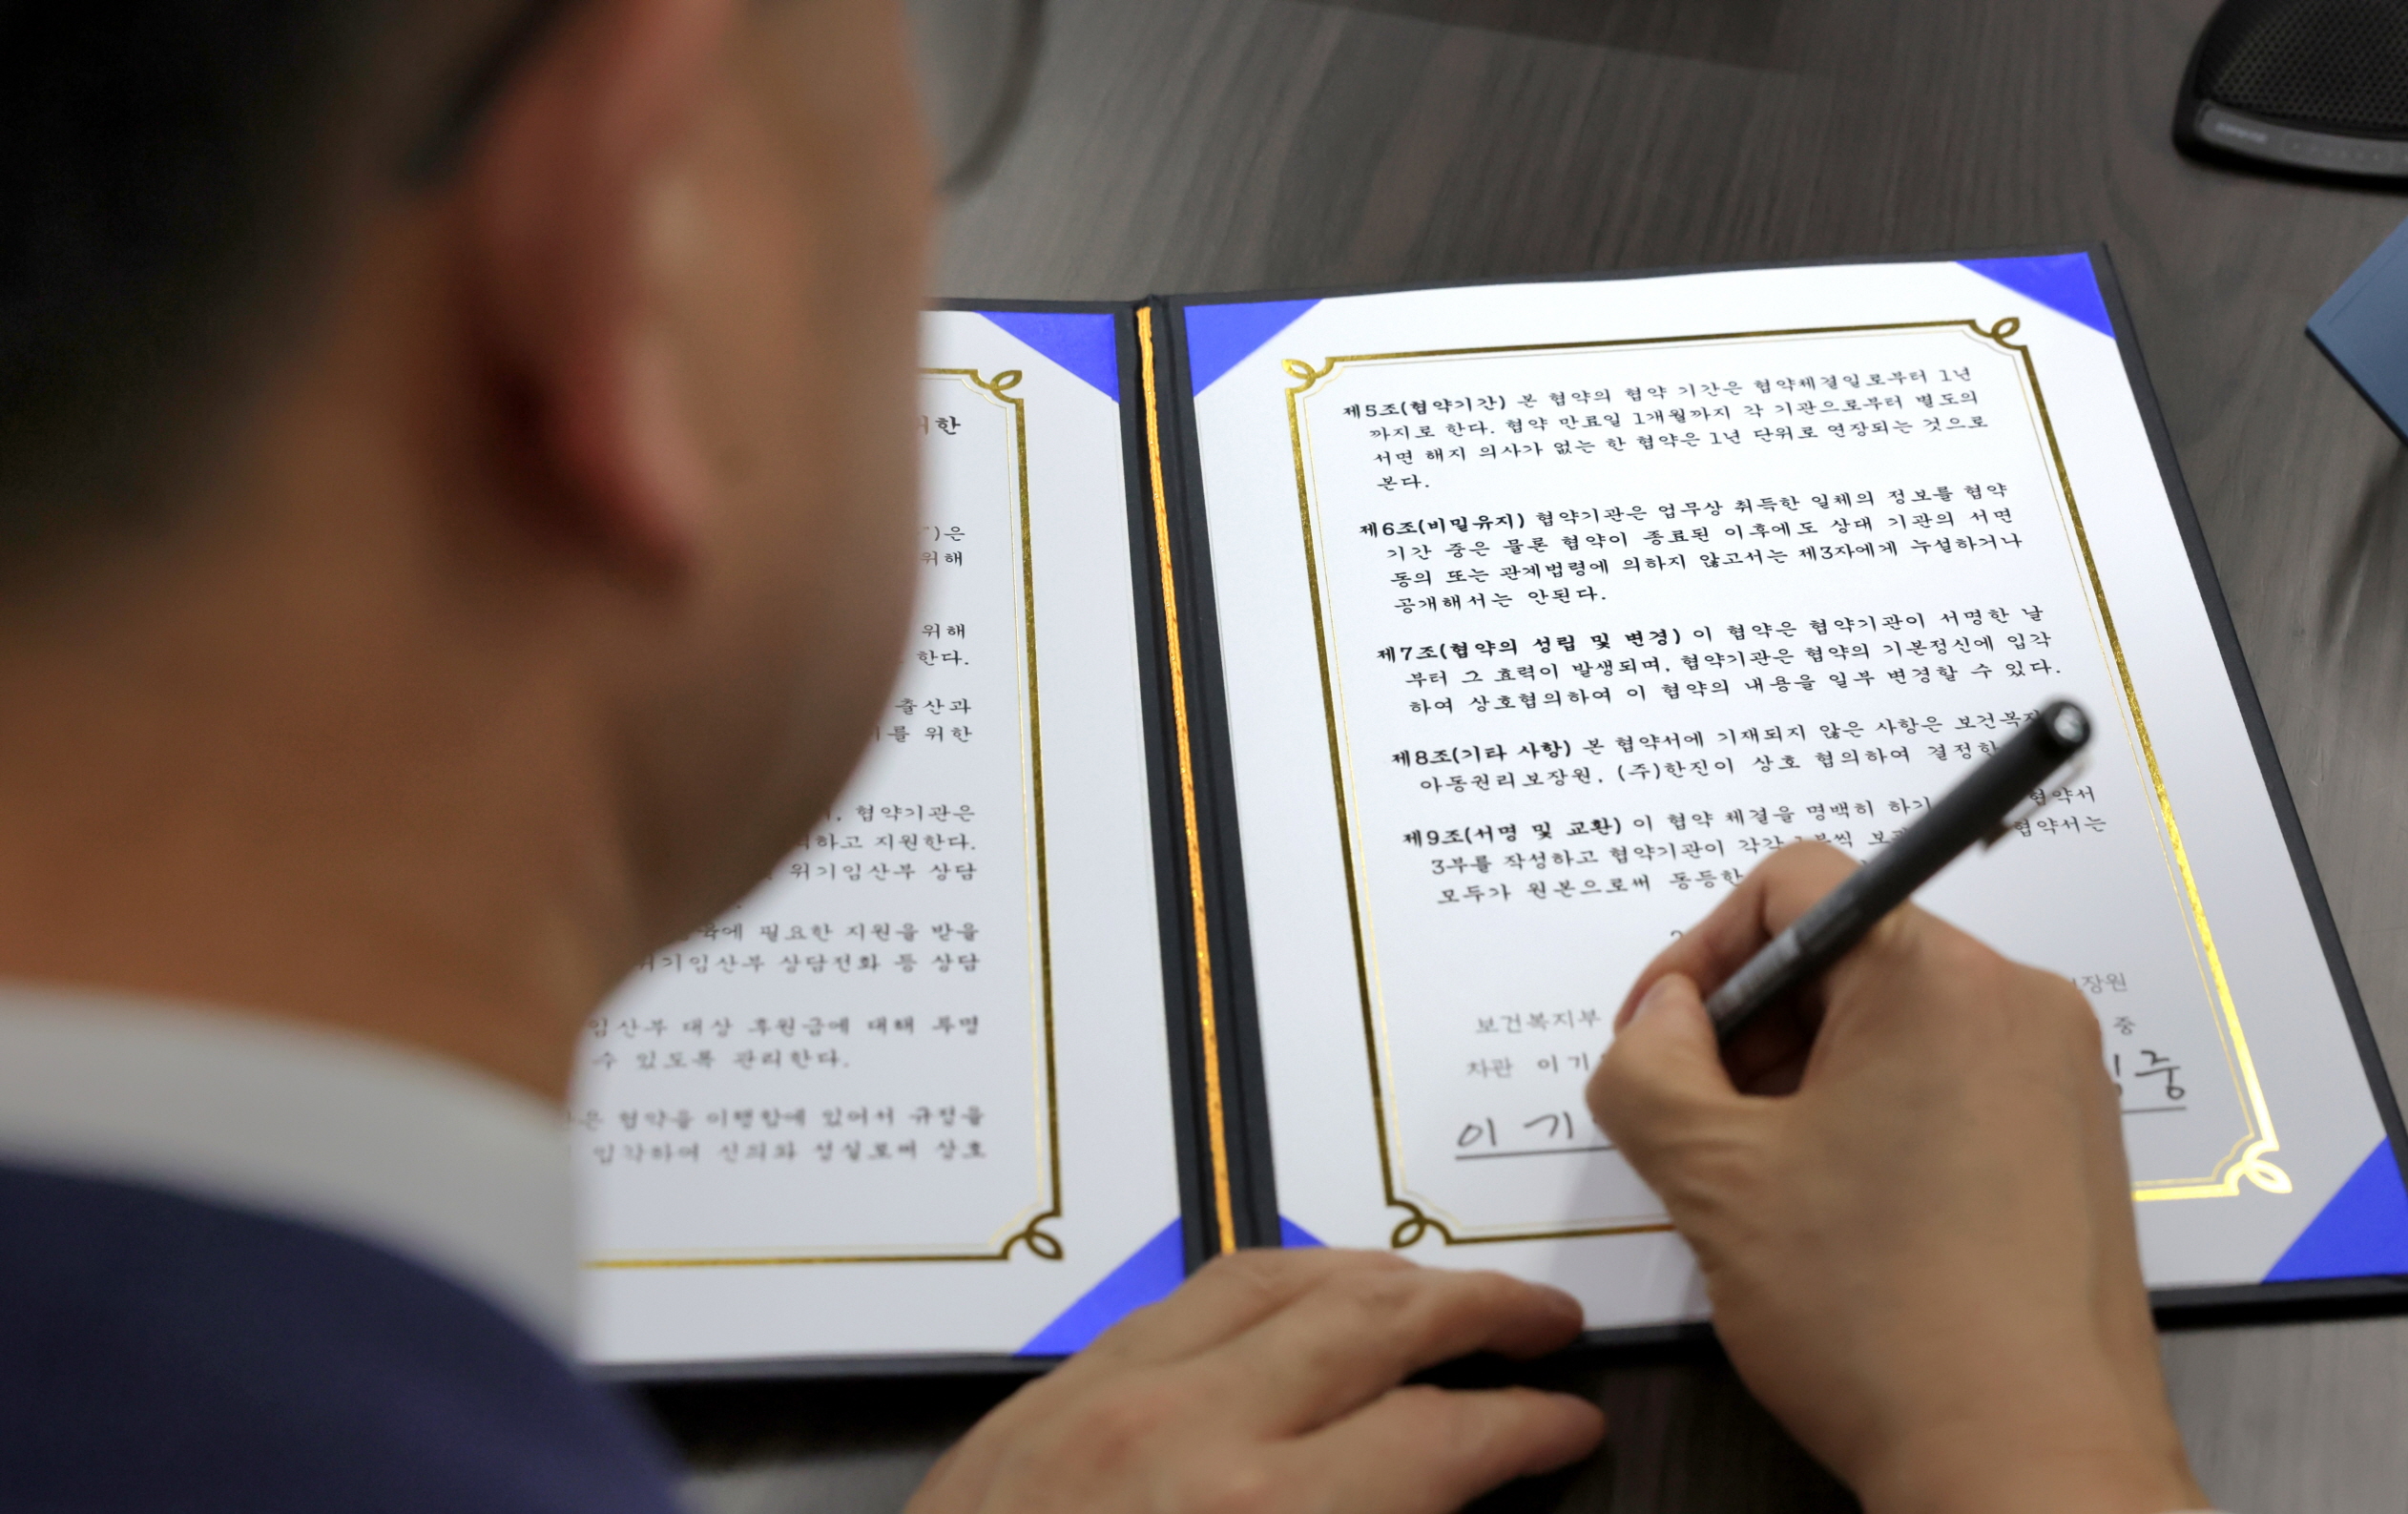 위한
")은
위해
위해
한다.
출산과
를 위한
협약기관은
하고 지원한다.
위기임산부 상담
필요한 지원을 받을
위기임산부 상담전화 등 상담
임산부 대상 후원금에 대해 투명
수 있도록 관리한다.
협약을 이행함에 있어서 규정을
입각하여 신의와 성실로써 상호
제5조(협약기간) 본 협약의 협약 기간은 협약체결일로부터 1년
까지로 한다. 협약 만료일 1개월까지 각 기관으로부터 별도의
서면 해지 의사가 없는 한 협약은 1년 단위로 연장되는 것으로
본다.
제6조(비밀유지) 협약기관은 업무상 취득한 일체의 정보를 협약
기간 중은 물론 협약이 종료된 이후에도 상대 기관의 서면
동의 또는 관계법령에 의하지 않고서는 제3자에게 누설하거나
공개해서는 안된다.
제7조(협약의 성립 및 변경) 이 협약은 협약기관이 서명한 날
부터 그 효력이 발생되며, 협약기관은 협약의 기본정신에 입각
하여 상호협의하여 이 협약의 내용을 일부 변경할 수 있다.
제8조(기타 사항) 본 협약서에 기재되지 않은 사항은 보건복지
아동권리보장원, (주)한진이 상호 협의하여 결정한
제9조(서명 및 교환) 이 협약 체결을 명백히 하기 협약서
3부를 작성하고 협약기관이 각각 1부씩 협약서는
모두가 원본으로써 동등한
보건복지부 보장원
차관 이기 중
이 기 중